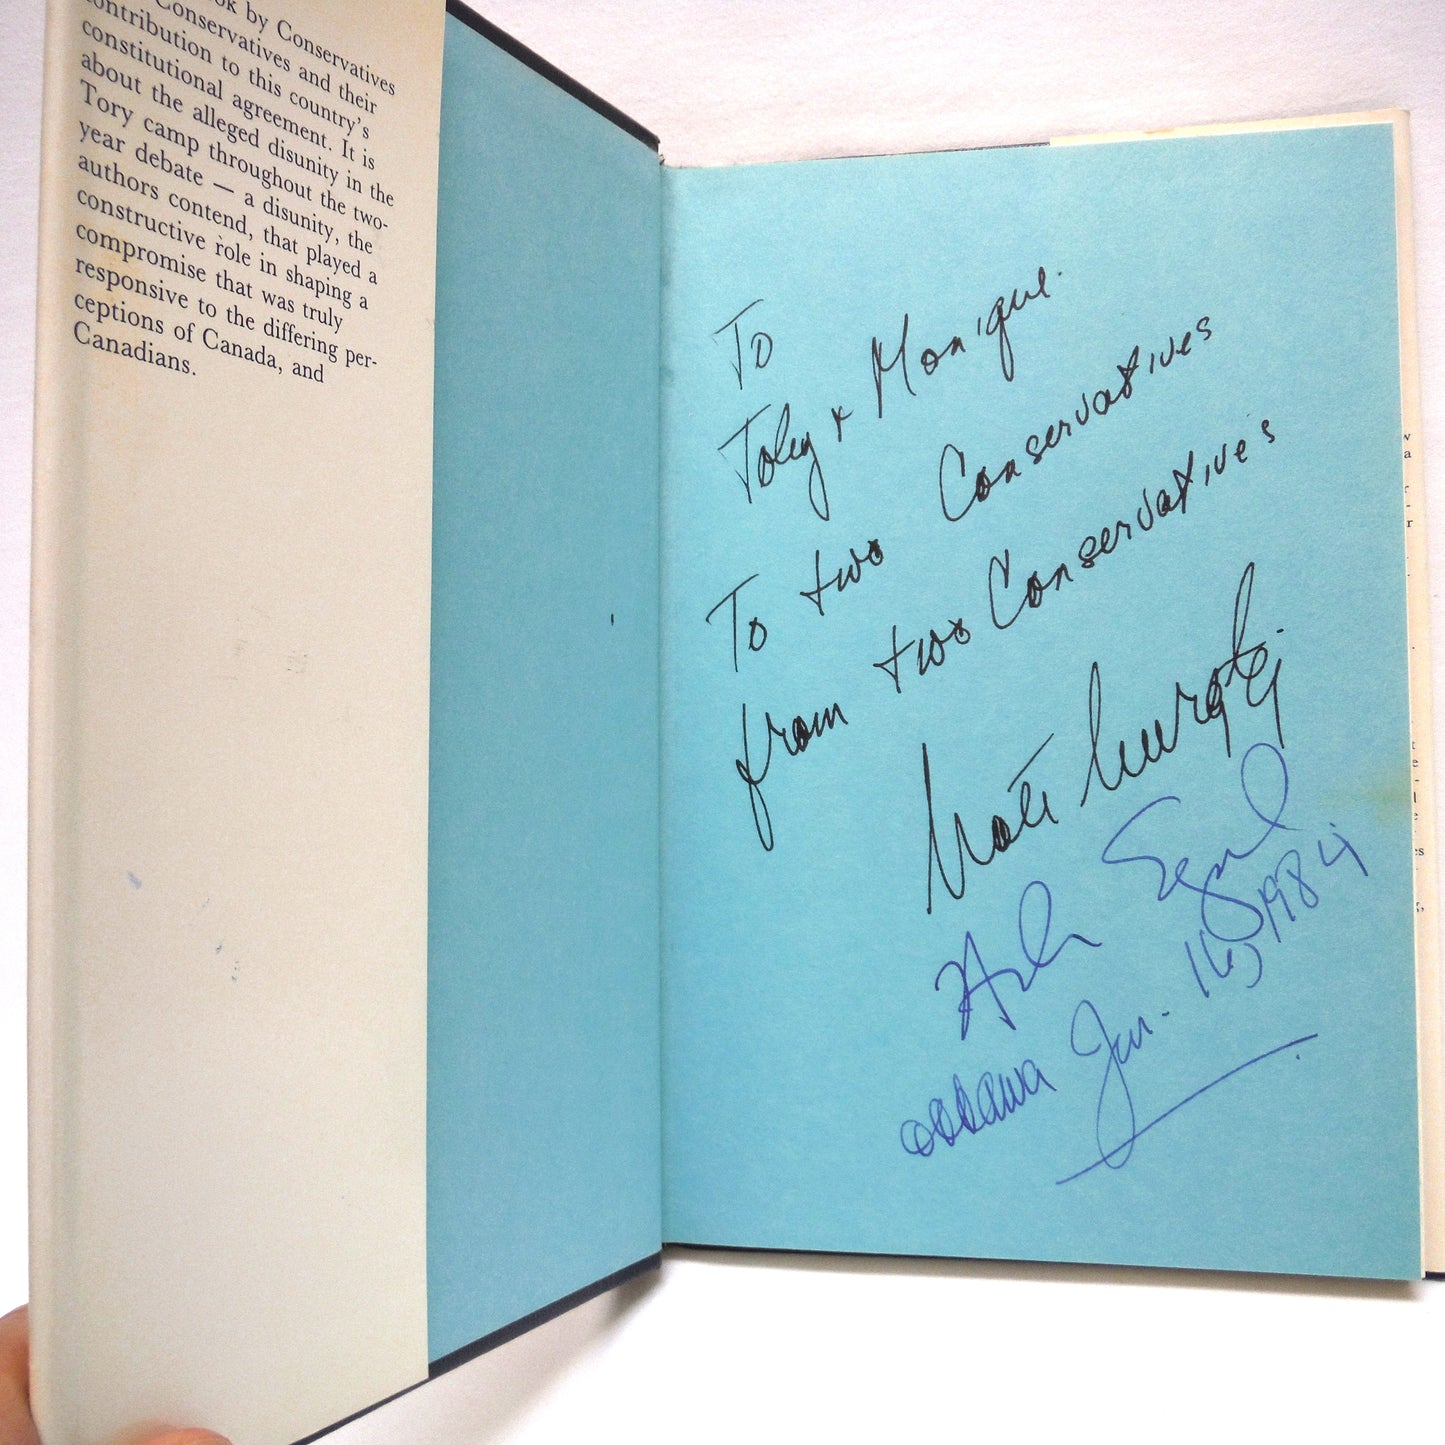 ok by Conservatives
Conservatives and their
contribution to this country's
constitutional agreement. It is
about the alleged disunity in the
Tory camp throughout the two-
year debate — a disunity, the
authors contend, that played a
constructive role in shaping a
compromise that was truly
responsive to the differing per-
ceptions of Canada, and
Canadians.
To
& Monique.
To two Conservatives
from two Conservatives
Segal
Jan. 16, 1984